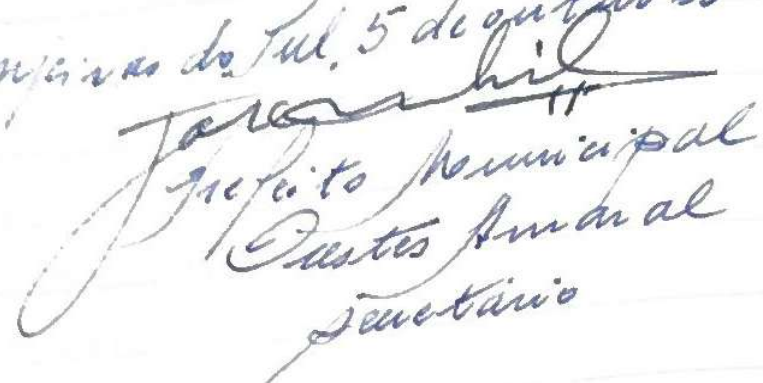 do Sul, 5 de outubro
Prefeito Municipal
Orestes Amaral
Secretário